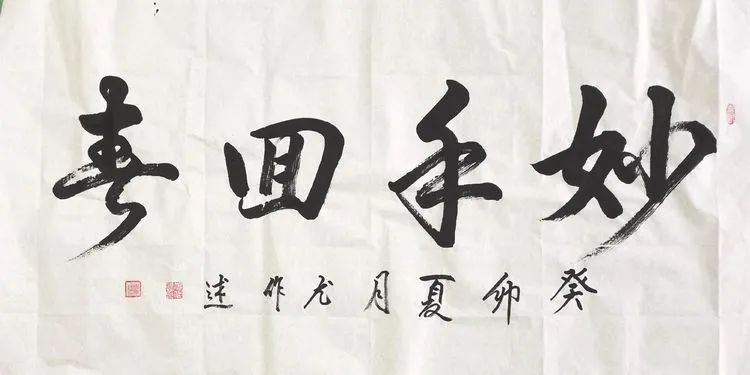 妙手回春
癸卯夏月尤作述